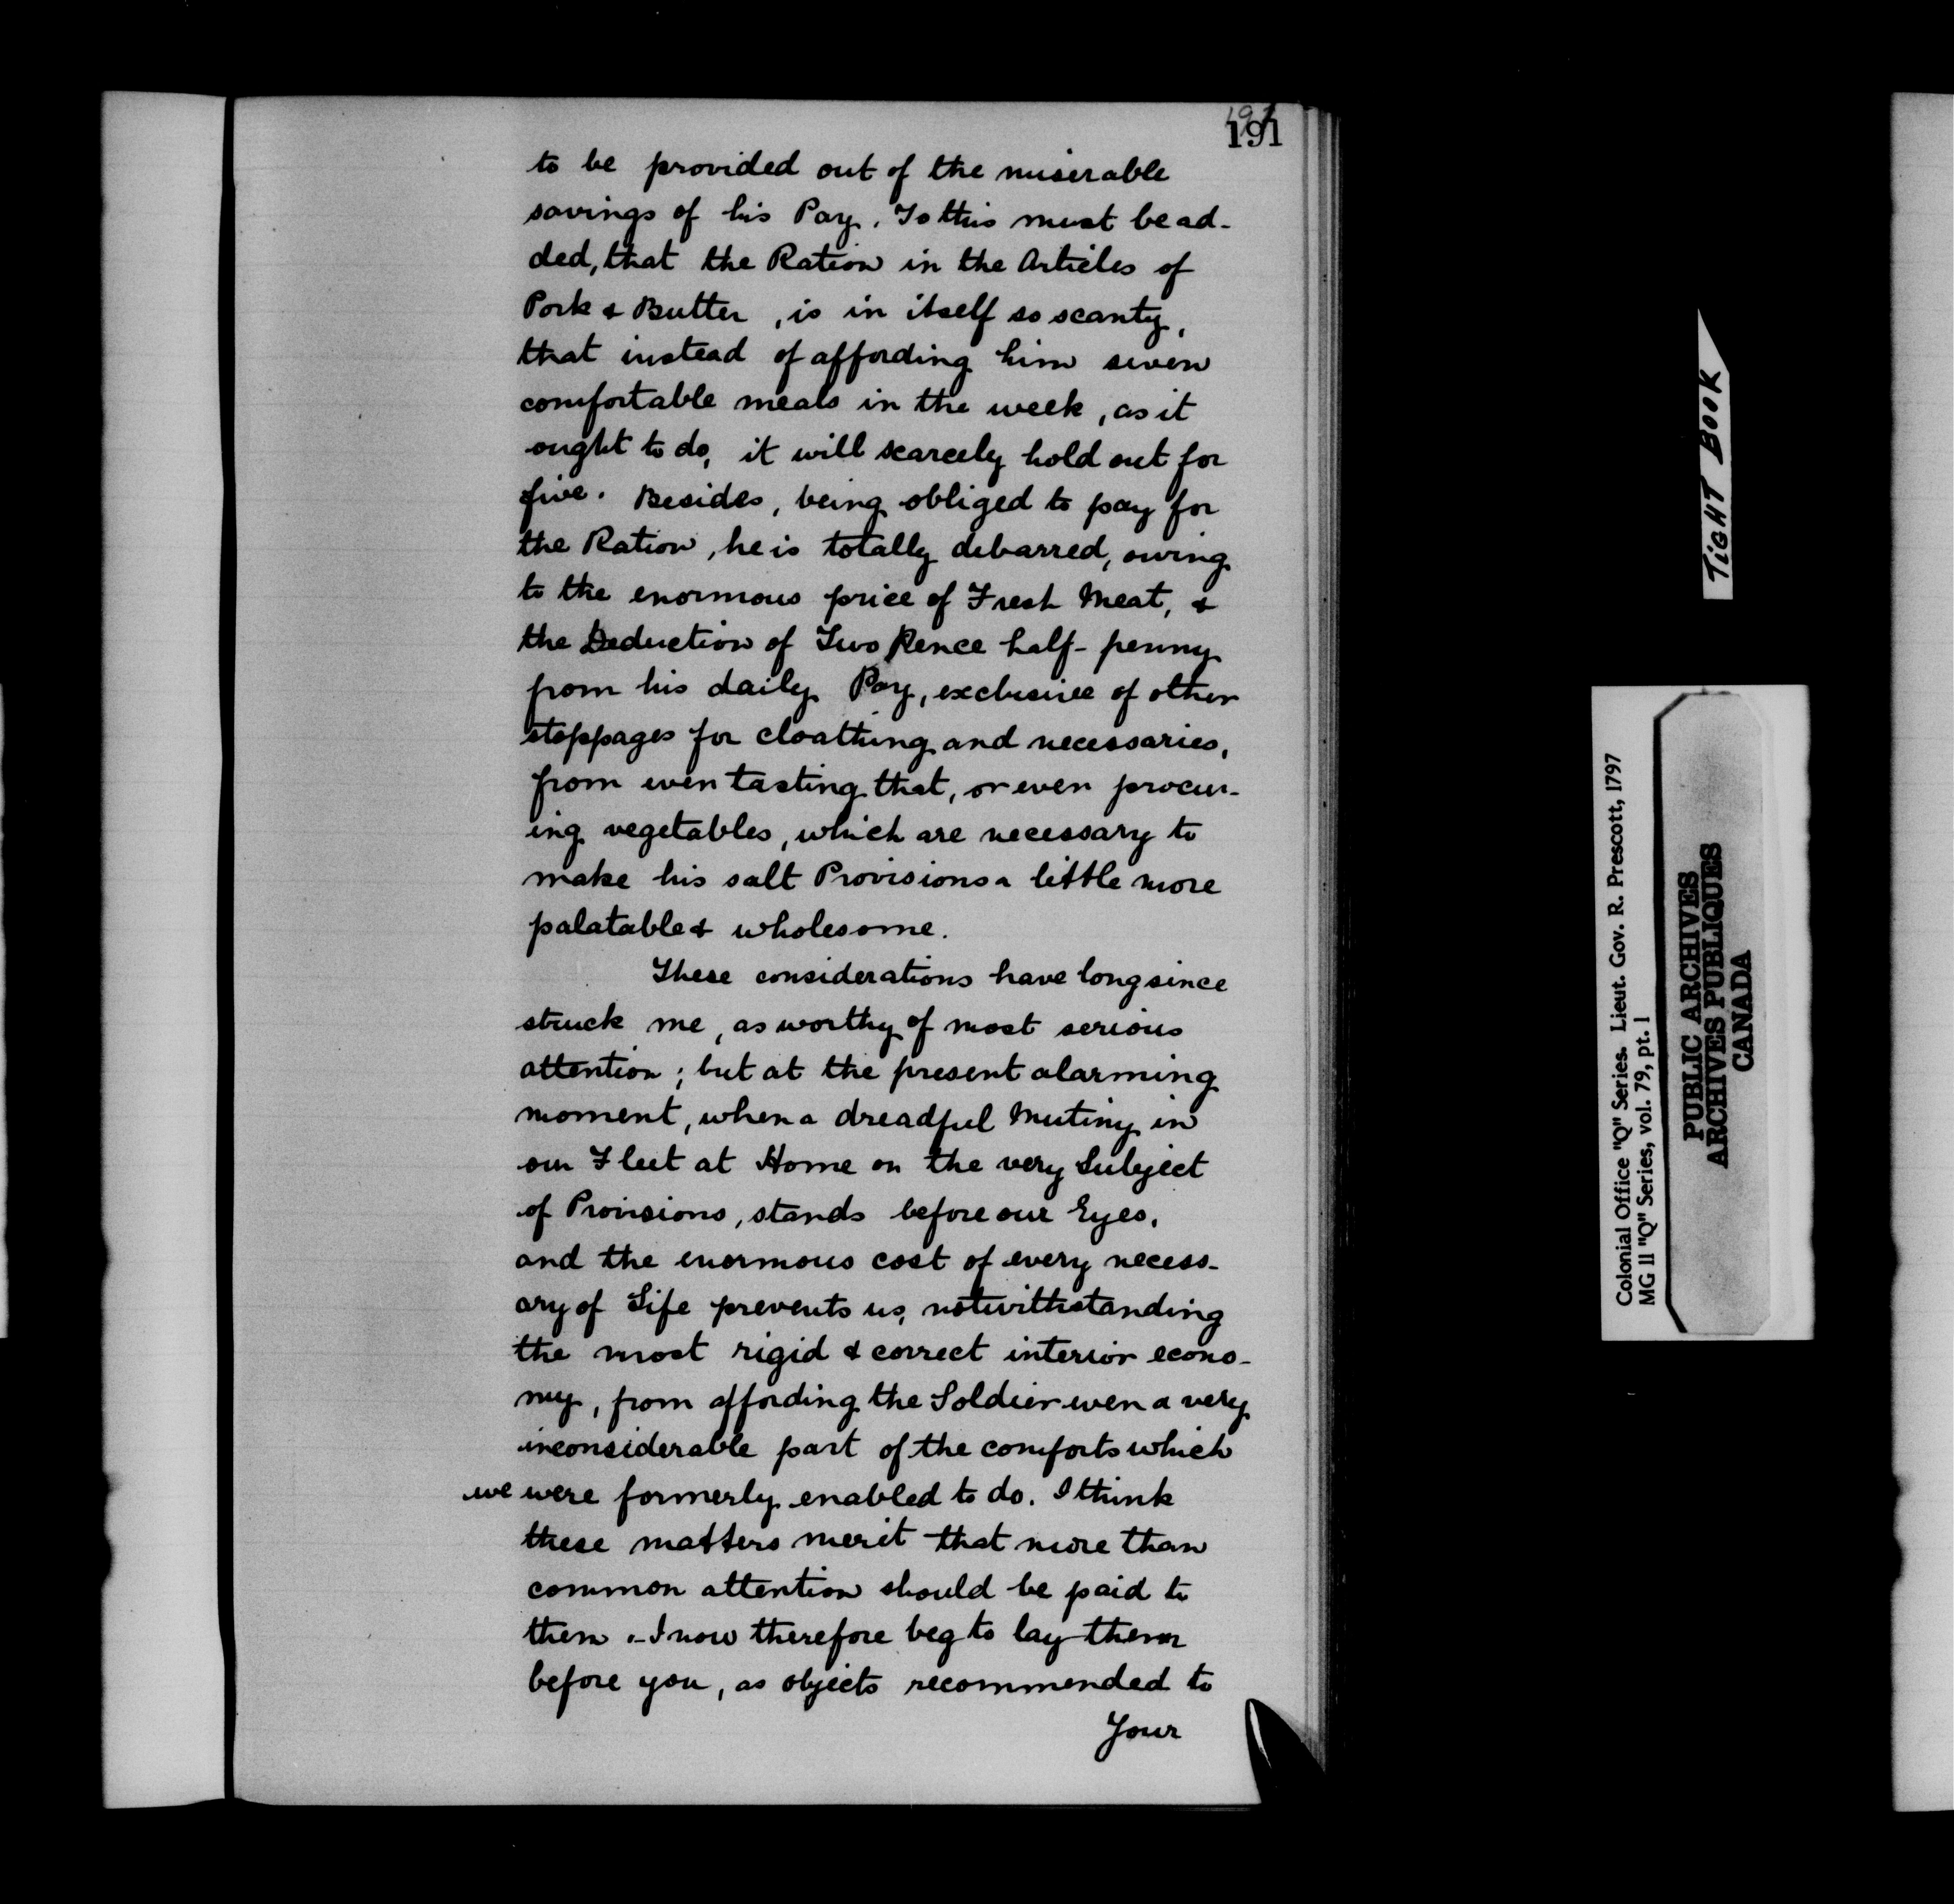 191
to be provided out of the miserable
savings of his Pay. To this must be ad-
ded, that the Ration in the Articles of
Pork & Butter, is in itself so scanty,
that instead of affording him seven
comfortable meals in the week, as it
ought to do, it will scarcely hold out for
five. Besides, being obliged to pay for
the Ration, he is totally debarred, owing
to the enormous price of Fresh Meat, &
the Deduction of Two Pence half-penny
from his daily Pay, exclusive of other
stoppages for cloathing and necessaries,
from even tasting that, or even procur-
ing vegetables, which are necessary to
make his salt Provisions a little more
palatable & wholesome.
These considerations have long since
struck me, as worthy of most serious
attention; but at the present alarming
moment, when a dreadful Mutiny in
our Fleet at Home on the very Subject
of Provisions, stands before our Eyes,
and the enormous cost of every necess-
ary of Life prevents us, notwithstanding
the most rigid & correct interior econo-
my, from affording the Soldier even a very
inconsiderable part of the comforts which
we were formerly enabled to do. I think
these matters merit that more than
common attention should be paid to
them. - I now therefore beg to lay them
before you, as objects recommended to
Your
TIGHT BOOK
Colonial Office "Q" Series. Lieut. Gov. R. Prescott, 1797
MG 11 "Q" Series, vol. 79, pt. 1
PUBLIC ARCHIVES
ARCHIVES PUBLIQUES
CANADA